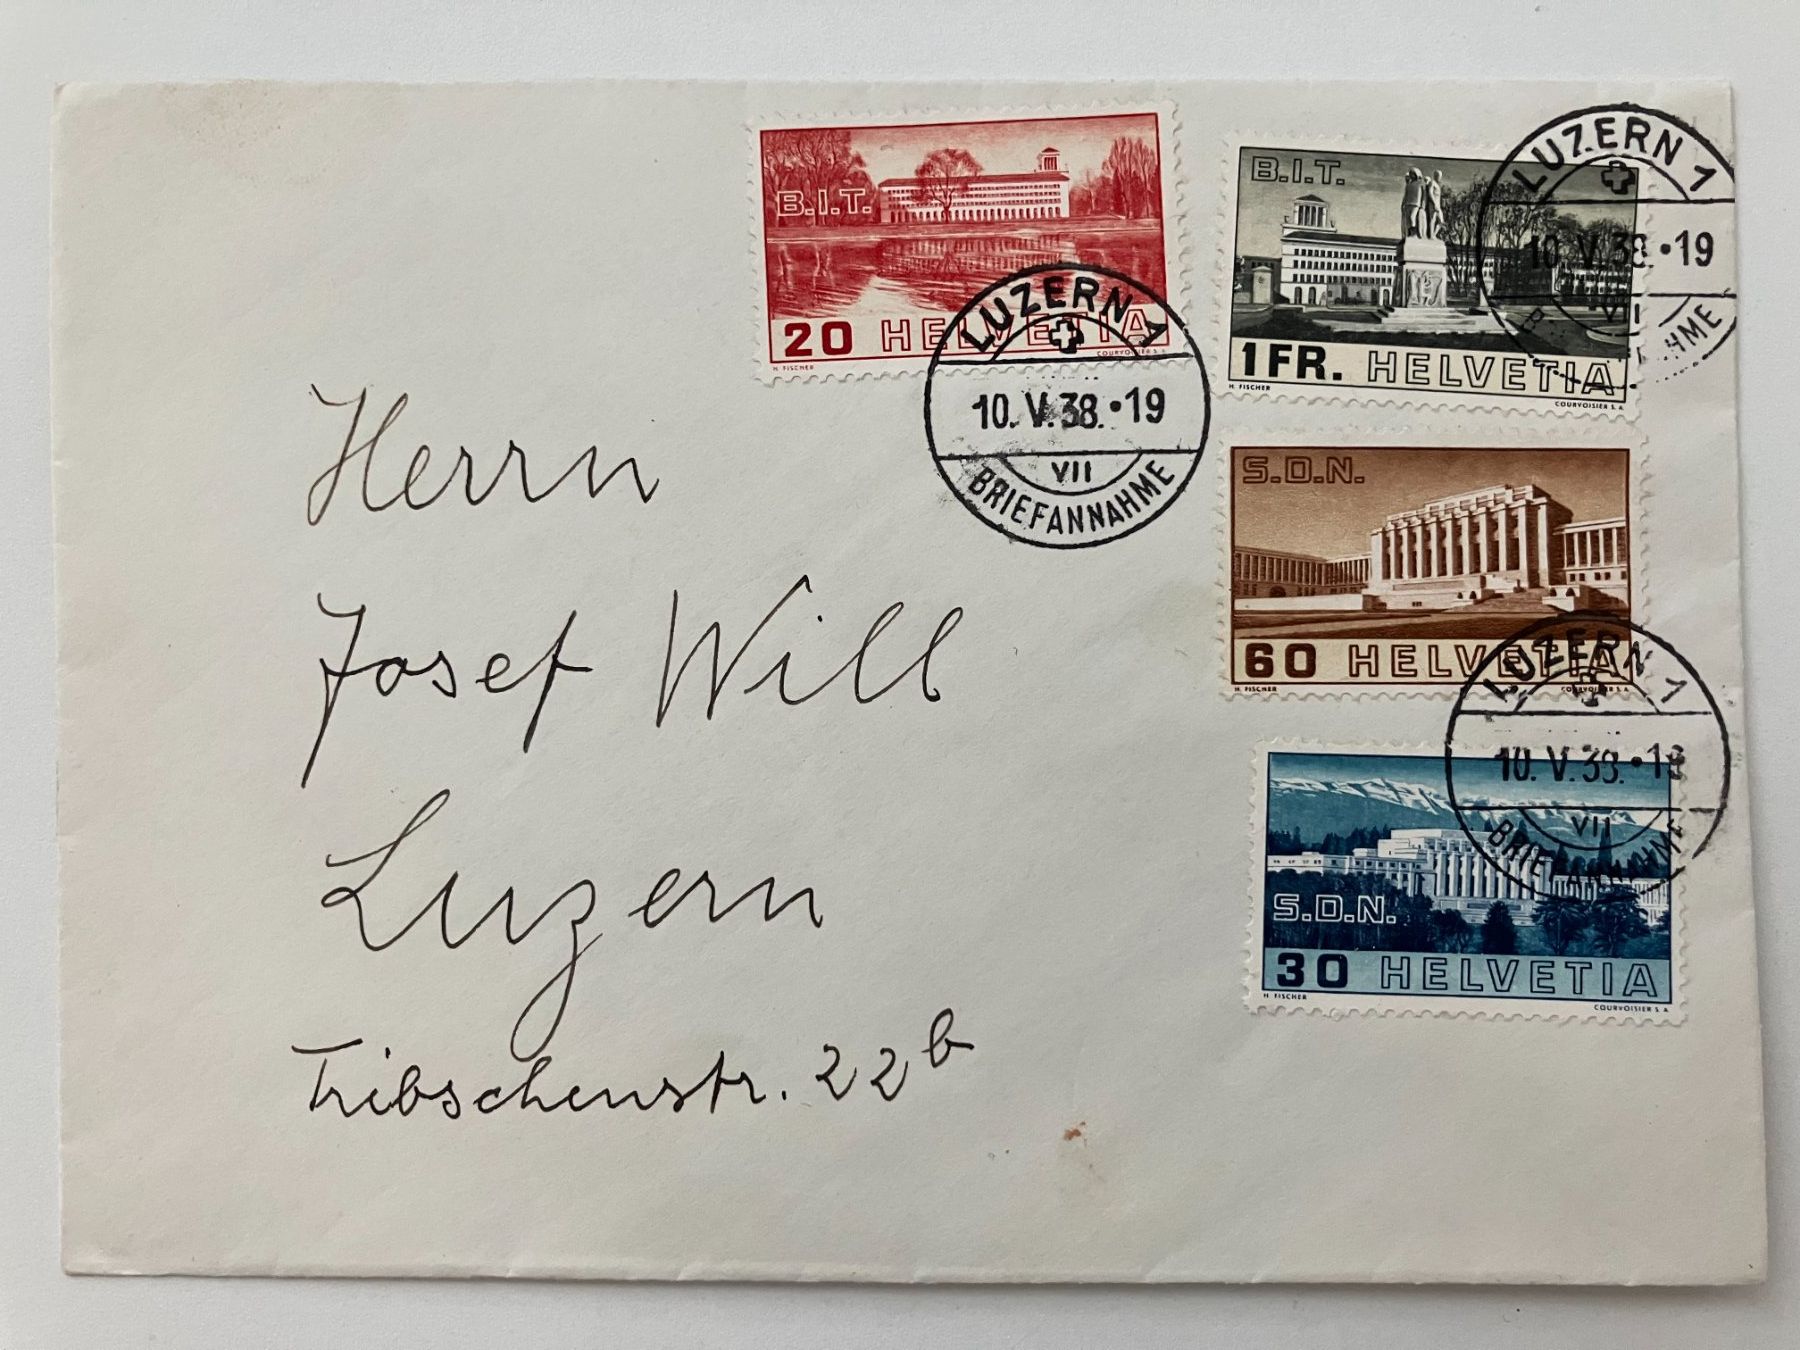 B.I.T.
20 HELVETIA
H. FISCHER COURVOISIER S.A.
LUZERN 1
10. V. 38. • 19
VII
BRIEFANNAHME
B.I.T.
1 FR. HELVETIA
H. FISCHER COURVOISIER S.A.
LUZERN 1
10. V. 38. • 19
VII
S.D.N.
60 HELVETIA
H. FISCHER COURVOISIER S.A.
LUZERN 1
10. V. 38. • 19
VII
BRIEFANNAHME
S.D.N.
30 HELVETIA
H. FISCHER COURVOISIER S.A.
Herrn
Josef Will
Luzern
Tribschenstr. 22b